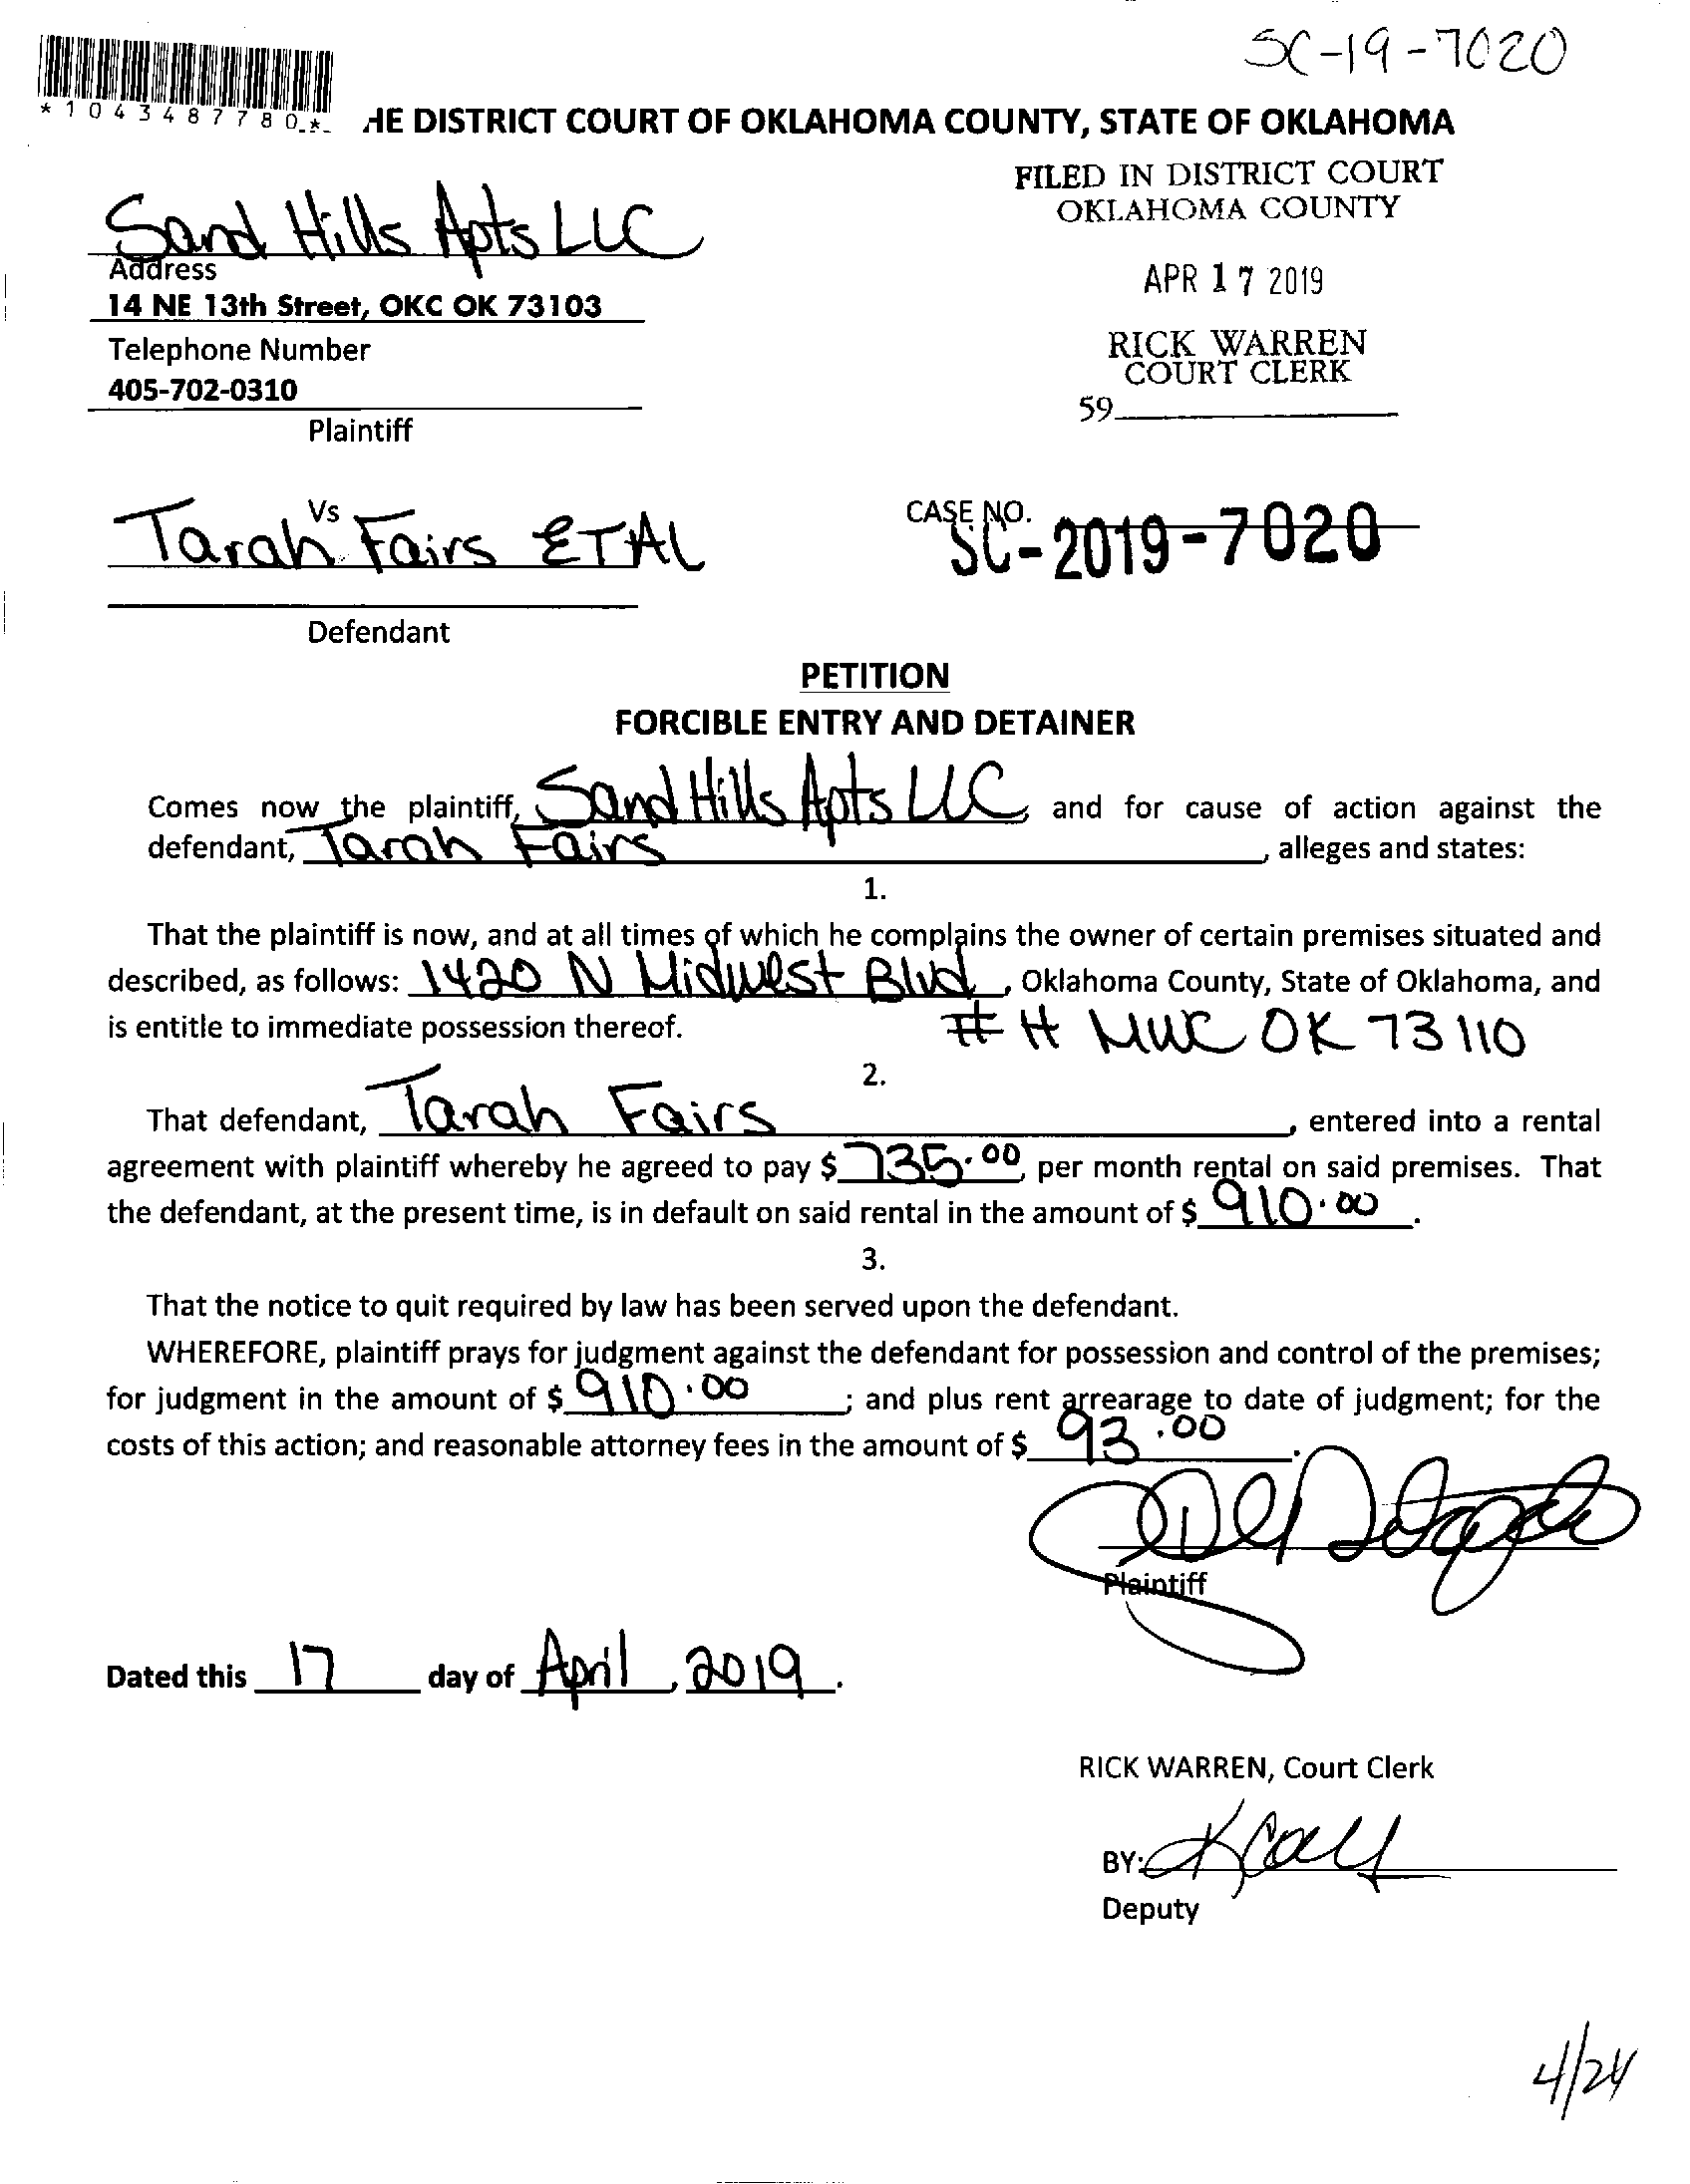 SC-19-7020
*1043487780*
HE DISTRICT COURT OF OKLAHOMA COUNTY, STATE OF OKLAHOMA
FILED IN DISTRICT COURT
OKLAHOMA COUNTY
Sand Hills Apts LLC
Address
14 NE 13th Street, OKC OK 73103
APR 17 2019
Telephone Number
RICK WARREN
COURT CLERK
405-702-0310
59
Plaintiff
Vs
Tarah Fairs ETAL
CASE NO.
SC-2019-7020
Defendant
PETITION
FORCIBLE ENTRY AND DETAINER
Comes now the plaintiff, Sand Hills Apts LLC, and for cause of action against the
defendant, Tarah Fairs, alleges and states:
1.
That the plaintiff is now, and at all times of which he complains the owner of certain premises situated and
described, as follows: 1420 N Midwest Blvd, Oklahoma County, State of Oklahoma, and
is entitle to immediate possession thereof. # H MWC OK 73110
2.
That defendant, Tarah Fairs, entered into a rental
agreement with plaintiff whereby he agreed to pay $ 735.00, per month rental on said premises. That
the defendant, at the present time, is in default on said rental in the amount of $ 910.00.
3.
That the notice to quit required by law has been served upon the defendant.
WHEREFORE, plaintiff prays for judgment against the defendant for possession and control of the premises;
for judgment in the amount of $ 910.00; and plus rent arrearage to date of judgment; for the
costs of this action; and reasonable attorney fees in the amount of $ 93.00.
Plaintiff
Dated this 17 day of April, 2019.
RICK WARREN, Court Clerk
BY:
Deputy
4/24